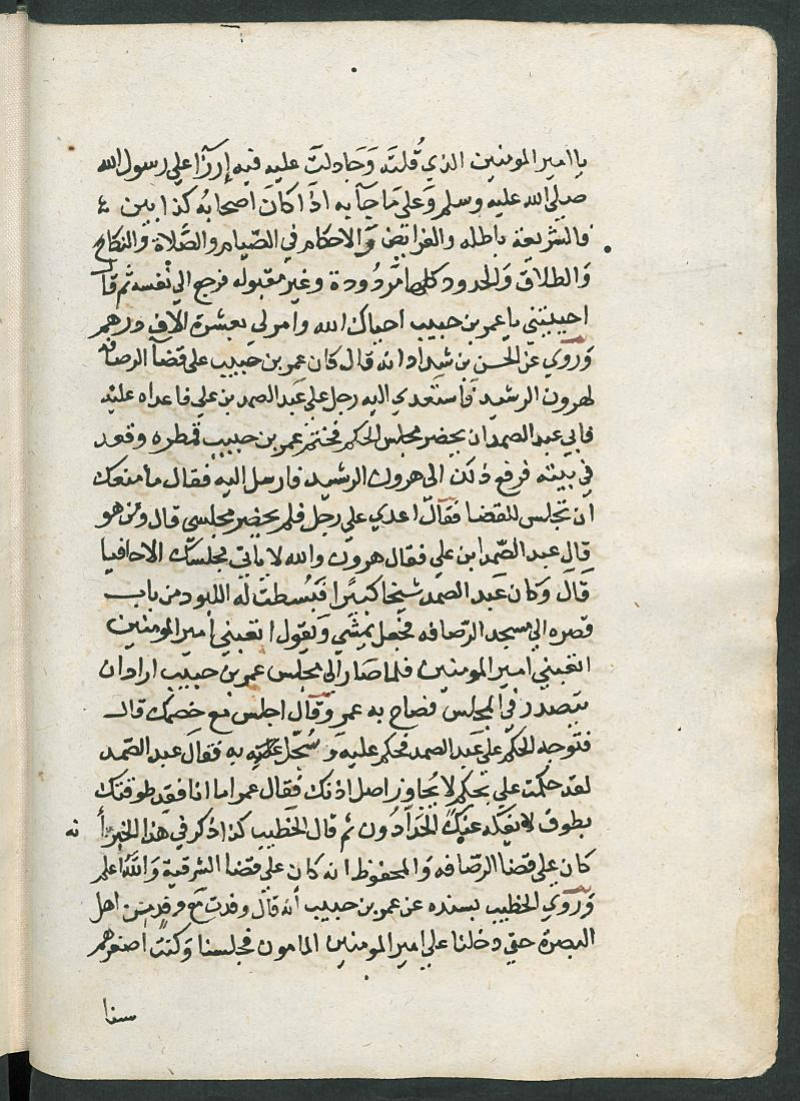 ياامير المومنين الذي قُلتَه وَجَادلتَ عليه فيه إزرَآ علي رسول الله
صلي الله عليه وسلم وَعلي مَا جَآ به اذَا كانَ اصحابُه كذابين
فالشريعة باطله والفرايض وَالاحكام في الصّيام والصَّلاة والنكاح
وَالطلاق وَالحدود كلها مَردُودة وغير مقبوله فرجع الي نفسه ثم قال
احييتني ياعمر بن حبيب احياك الله وامر لي بعشرة الاف درهم
وَروي عَن الحسن بن شداد انه قال كان عمر بن حَبيب علي قضآ الرصافه
لهرون الرشيد فَاستَعدي اليه رجل علي عَبد الصمد بن علي فاعداه عليه
فابي عبد الصمد ان يحضر مجلس الحكم فختم عمر بن حبيب قمطره وقعد
في بيته فرفع ذلك الي هرون الرشيد فارسل اليه فقال ما منعك
ان تجلس للقضا فقالَ اعدي علي رجل فلم يحضر مجلسي قال ومن هو
قال عبد الصّمد ابن علي فقال هرون والله لا ياتي مجلسك الا حافيا
قَالَ وَكان عَبد الصمد شيخا كبيرًا فَبُسطت له اللبود من باب
قصره الي مسجد الرصافه فجعل يمشي وَيقول اتعبني امير المومنين
اتعبني امير المومنين فلما صَار الي مجلس عمر بن حبيب اراد ان
يتصدر في المجلس فصاح به عمر وَقال اجلس مع خصمك قال
فتوجه الحكم علي عَبد الصمد فحكم عليه وَسُجّل عليه به فقال عبد الصّمد
لقد حكمت علي بحكم لا يُجاوز اصل اذنك فقال عمر اما انا فقد طوقتك
بطوق لا يفكه عنك الحَدّادُون ثم قال الخَطيب كذا ذكر في هذا الخبر أنه
كان علي قضا الرصافه وَالمحفوظ انه كان علي قضا الشرقية وَالله أعلم
وَروي الخطيب بسنده عن عمر بن حبيب أنه قال وفدت مع وفد من اهل
البصرة حتي دخلنا علي امير المومنين المامون فجلسنا وَكنت اصغرهم
سنا